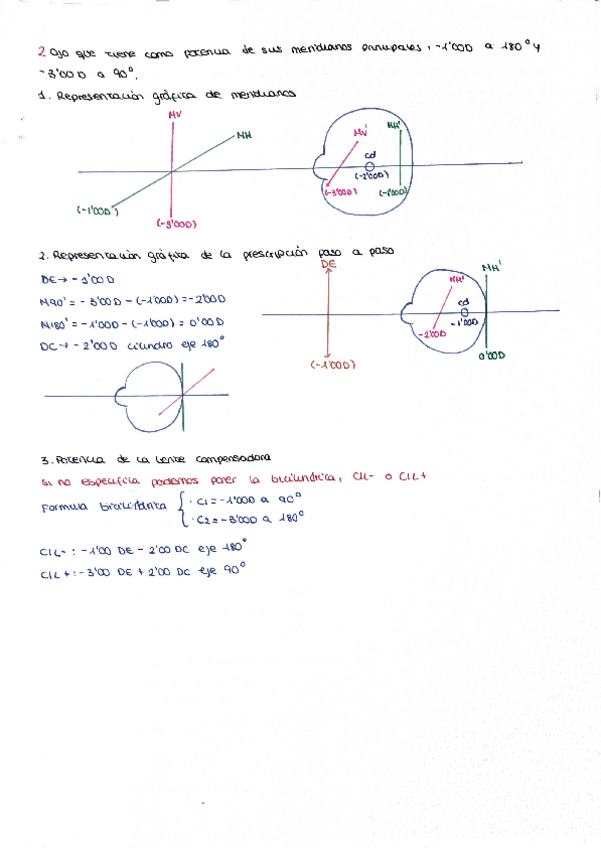 2 Ojo que tiene como potencia de sus meridianos principales, -1'00D a 180° y
-3'00 D a 90°.
1. Representación gráfica de meridianos
MV
MH
(-1'00D)
(-3'00D)
MV'
MH'
cd
(-2'00D)
(-3'00D)
(-1'00D)
2. Representación gráfica de la prescripción paso a paso
DE → - 1'00 D
M90' = - 3'00 D - (-1'00D) = -2'00D
M180' = -1'00D - (-1'00D) = 0'00D
DC → - 2'00 D cilindro eje 180°
DE
(-1'00D)
MV'
MH'
cd
-1'00D
-2'00D
0'00D
3. Potencia de la lente compensadora
Si no especifica podemos poner la bicilíndrica, CIL- o CIL+
Formula bicilíndrica { · C1 = -1'00D a 90°
· C2 = -3'00D a 180°
CIL- : -1'00 DE - 2'00 DC eje 180°
CIL+ : -3'00 DE + 2'00 DC eje 90°